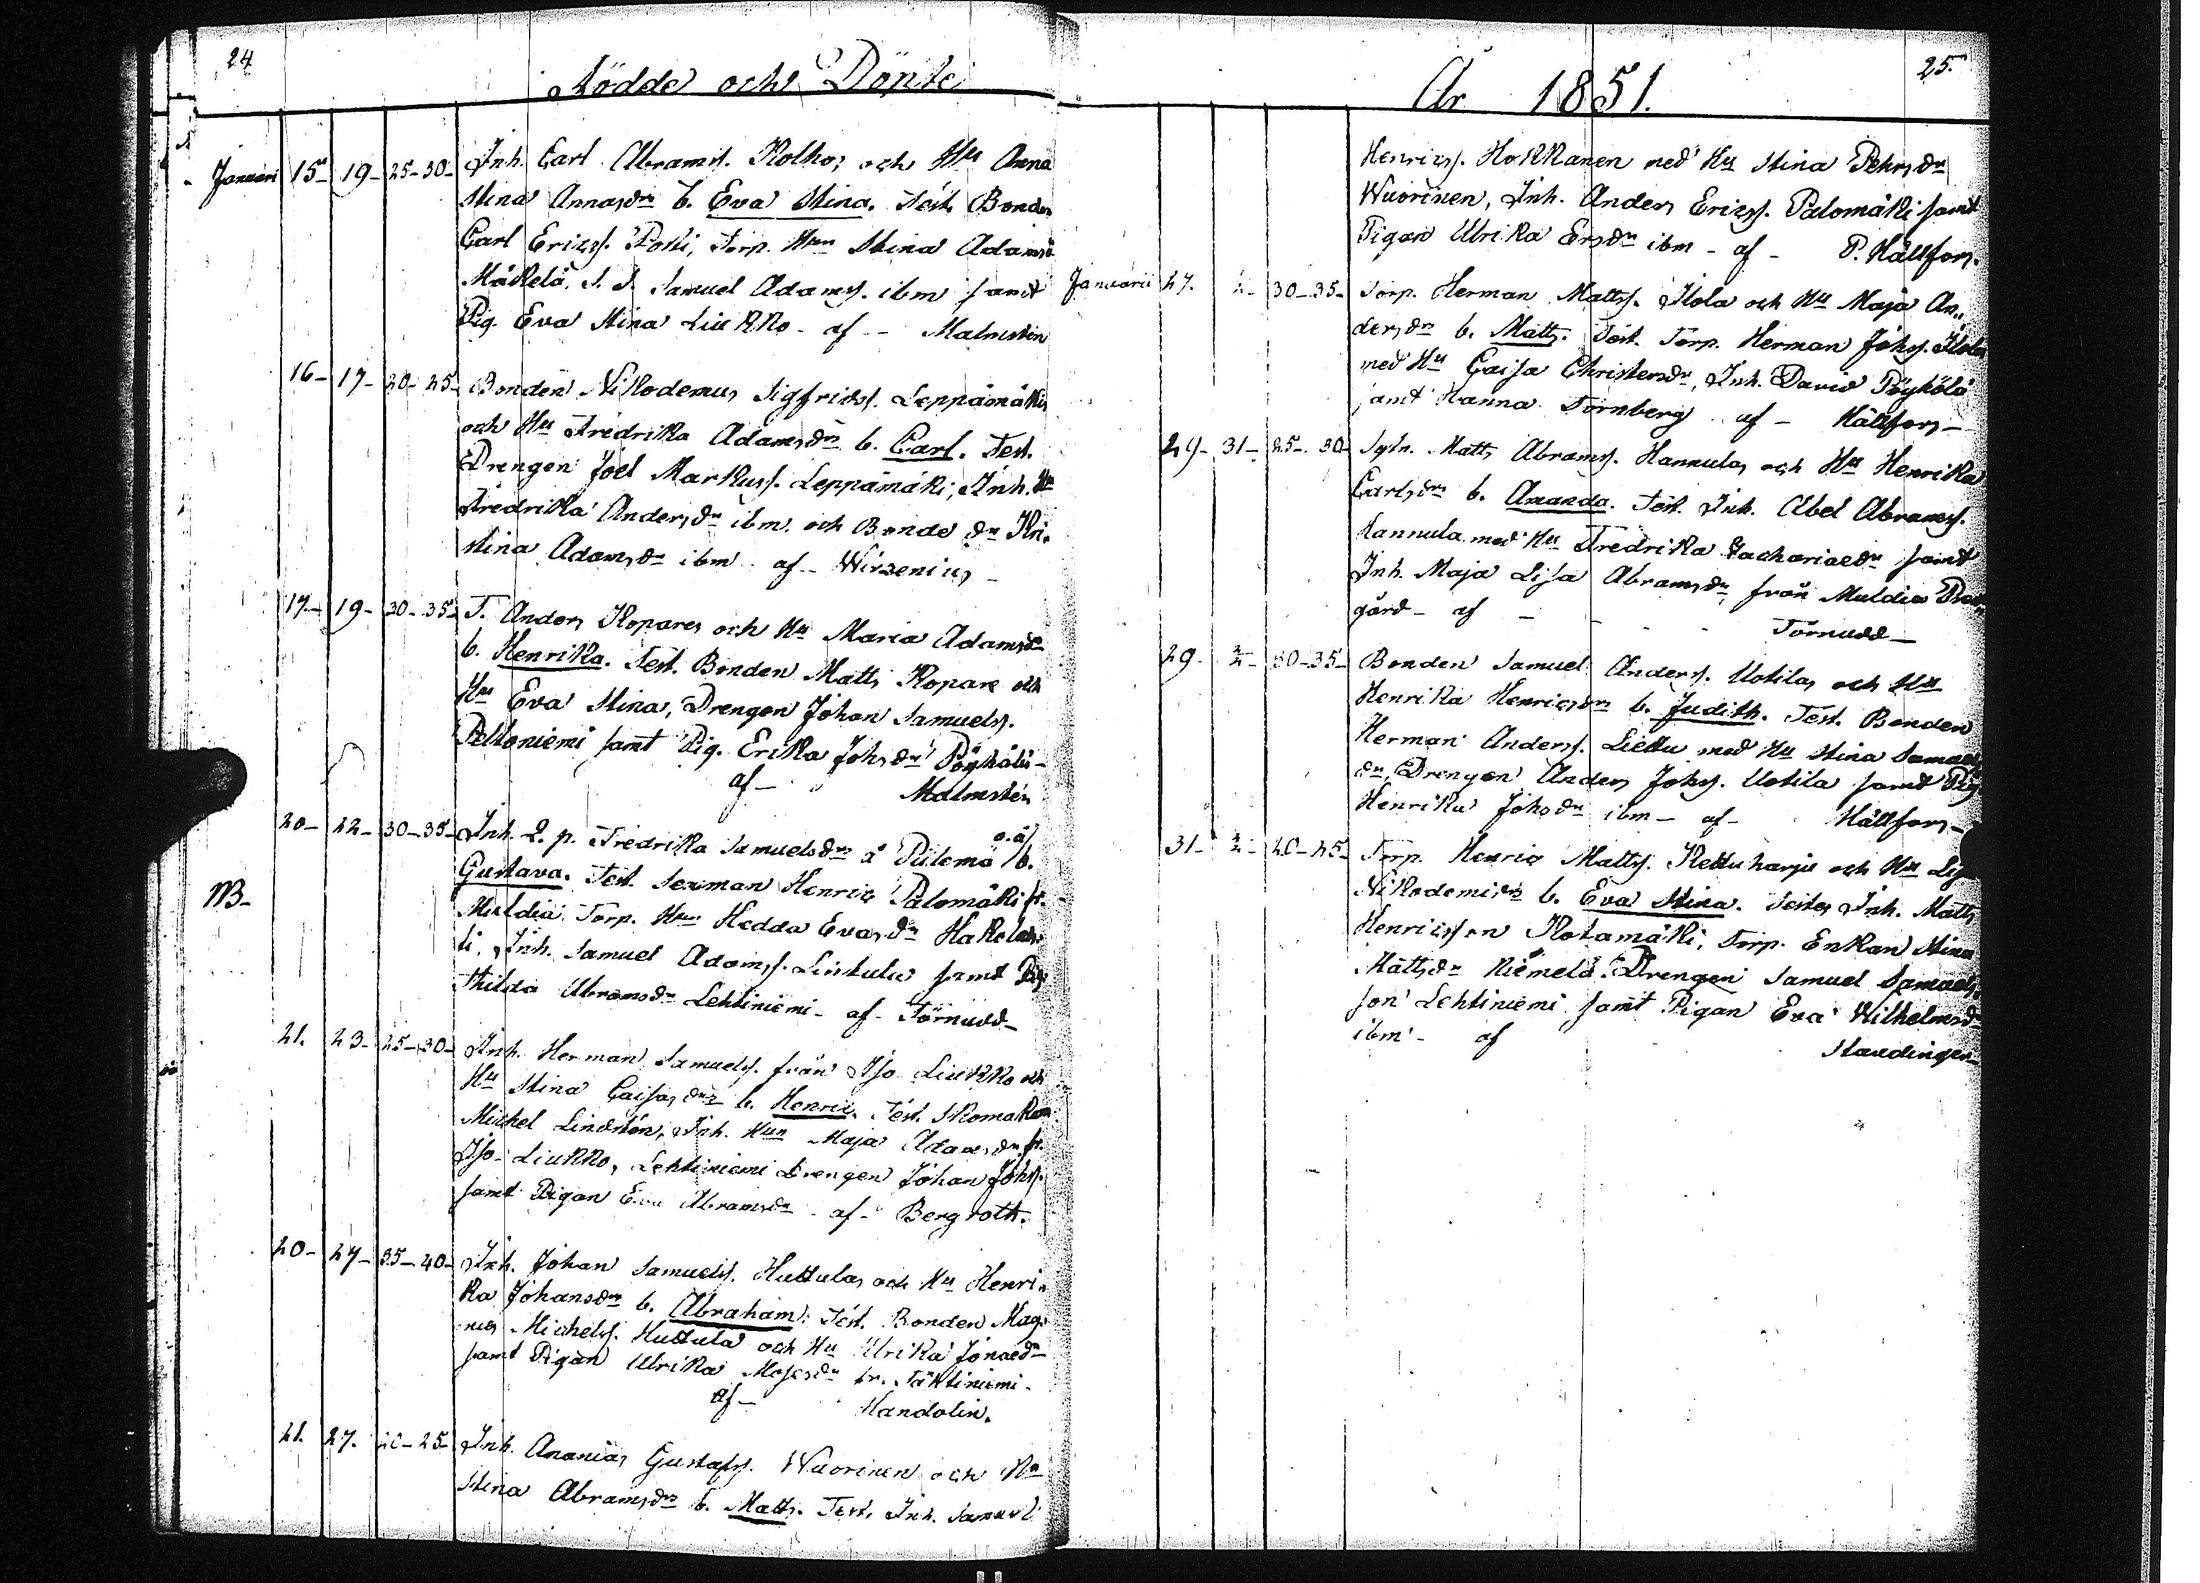 24
Födde och Döpte
Januari 15- 19- 25-30- Inh. Carl Abramss. Kolho, och Hu Anna
Stina Annasdr b. Eva Stina. Test. Bonden
Carl Ericss. Poski, Torp. Hun Stina Adamsd
Mäkelä, S. S. Samuel Adamss. ibm samt
Pig. Eva Stina Liukko - af - Malmsten
16- 17- 20-25- Bonden Nikodemus Sigfridss. Leppämäki,
och Hu Fredrika Adamsdr b. Carl. Test.
Drengen Joel Markuss. Leppämäki, Inh. Hu
Fredrika Andersdr ibm och Bonde dr Kri-
stina Adamsdr ibm - af - Wirzenius -
17- 19- 30-35- T. Anders Kopares och Hu Maria Adamsdr
b. Henrika. Test. Bonden Matts Kopare och
Hu Eva Stina, Drengen Johan Samuelss.
Peltoniemi samt Pig. Erika Johsdr Pöyhölä -
af - Malmstén
20- 22- 30-35- Inh. Q. p. Fredrika Samuelsdr å Palomä b.
o.ä
NB-
Gustava. Test. Sexman Henric Palomäki fr.
Muldia, Torp. Hun Hedda Evasdr Hakolah-
ti, Inh. Samuel Adamss. Linkula samt Pig
Thilda Abramsdr Lehtiniemi - af - Törnudd -
21. 23- 25-30- Inh. Herman Samuelss. från Iso Liukko och
Hu Stina Caisasdr b. Henric. Test. Skomakaren
Michel Lindstén, Inh. Hun Maja Adamsdr fr.
Iso-Liukko, Lehtiniemi Drengen Johan Johss.
samt Pigan Eva Abramsdr - af - Bergroth.
20- 27- 35-40- Inh. Johan Samuelss. Huttulas och Hu Henri-
ka Johansdr b. Abraham. Test. Bonden Mag-
nus Michelss. Huttula och Hu Ulrika Jonaedr
samt Pigan Ulrika Mosesdr fr. Tähtiniemi -
af - Handolin.
21. 27. 20-25- Inh. Ananias Gustafss. Wuorinen och Hu
Stina Abramsdr b. Matts. Test. Inh. Samuel
År 1851.
25.
Henricss. Hokkanen med Hu Stina Pehrsdr
Wuorinen, Inh. Anders Ericss. Palomäki samt
Pigan Ulrika Ersdr ibm - af - P. Hällfors.
Januari 27. 30-35- Torp. Herman Mattss. Ilola och Hu Maja An-
dersdr b. Matts. Test. Torp. Herman Johss. Ilola
med Hu Caisa Christersdr, Inh. David Pöyhölä
samt Hanna Törnberg af - Hällfors -
29- 31- 25-30- Sytn. Matts Abramss. Hannulas och Hu Henrika
Carlsdr b. Amanda. Test. Inh. Abel Abramss.
Hannula med Hu Fredrika Zachariaedr samt
Inh. Maja Lisa Abramsdr, från Muldia
gård - af - Törnudd -
29- 30-35- Bonden Samuel Anderss. Uotilas och Hu
Henrika Henricsdr b. Judith. Test. Bonden
Herman Anderss. Liettu med Hu Stina Samuels
dr, Drengen Anders Johss. Uotila samt Pig
Henrika Johsdr ibm - af - Hällfors -
31- 40-45- Torp. Henric Mattss. Kettuharju och Hu
Nikodemidr b. Eva Stina. Testes Inh. Matts
Henricsson Kotamäki, Torp. Enkan Stina
Mattsdr Niemelä. Drengen Samuel Samuels-
son Lehtiniemi samt Pigan Eva Wilhelmsdr
ibm - af Standinger -